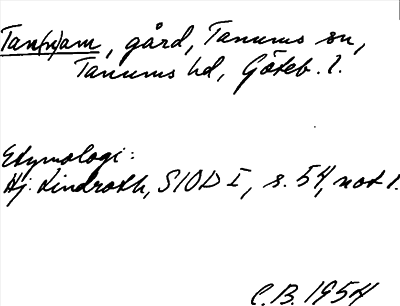 Tan(n)am, gård, Tanums sn,
Tanums hd, Göteb. l.
Etymologi:
Hj. Lindroth, SIOD I, s. 54, not 1.
C.B. 1954